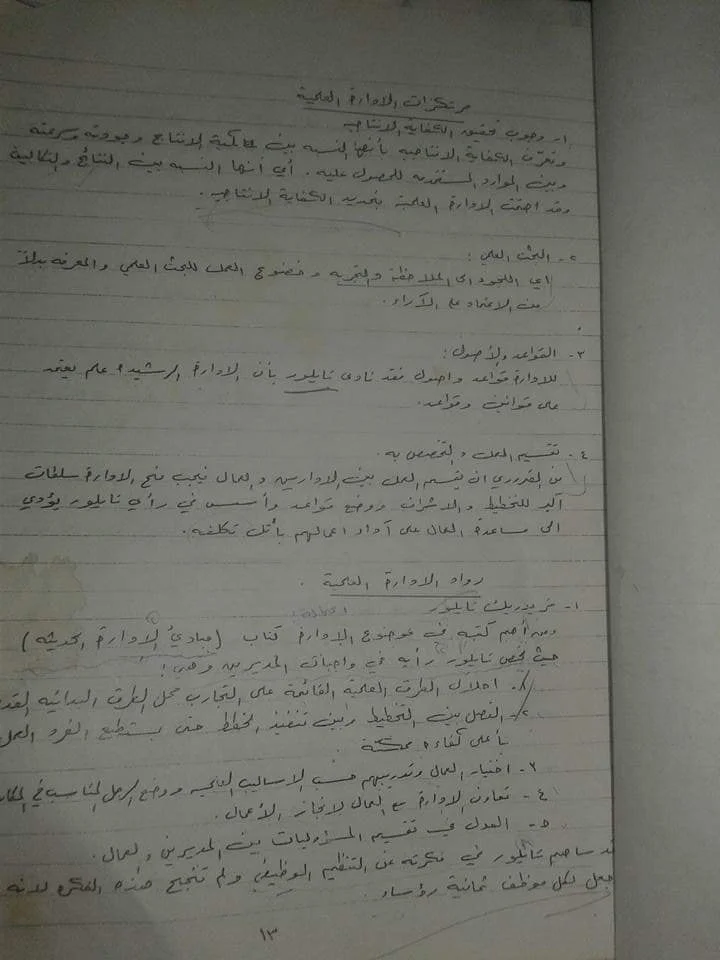 مرتكزات الادارة العلمية
١- وجوب تحقيق الكفاية الانتاجيه
وتعرّف الكفاية الانتاجيه بأنها النسبه بين كمية الانتاج وجودته وسرعته
وبين الموارد المستخدمه للحصول عليه . أي أنها النسبه بين النتائج والتكاليف
وقد اهتمت الادارة العلمية بتحديد الكفاية الانتاجيه .
٢- البحث العلمي :
اي اللجوء الى الملاحظة والتجربه وخضوع العمل للبحث العلمي والمعرفه بدلاً
من الاعتماد على الآراء .
٣- القواعد والأصول :
للادارة قواعد واصول فقد نادى تايلور بأن الادارة الرشيده علم يعتمد
على قوانين وقواعد .
٤- تقسيم العمل والتخصص به .
من الضروري ان يقسم العمل بين الادارين والعمال فيجب منح الادارة سلطات
أكبر للتخطيط والاشراف ووضع قواعد وأسس في رأي تايلور يؤدي
الى مساعدة العمال على أداء اعمالهم بأقل تكلفه .
رواد الادارة العلمية .
١- فريدريك تايلور
ومن أهم كتبه في موضوع الادارة كتاب (مبادئ الادارة الحديثه)
حيث لخص تايلور رأيه في واجبات المديرين وهي :
١- احلال الطرق العلمية القائمة على التجارب محل الطرق البدائيه
٢- الفصل بين التخطيط وبين تنفيذ الخطط حتى يستطيع الفرد العمل
بأعلى كفاءه ممكنة
٣- اختيار العمال وتدريبهم حسب الاساليب العلميه ووضع الرجل المناسب في
٤- تعاون الادارة مع العمال لانجاز الأعمال .
٥- العدل في تقسيم المسؤوليات بين المديرين والعمال .
ساهم تايلور في فكرته عن التنظيم الوظيفي ولم تنجح هذه الفكره لانه
جعل لكل موظف ثمانية رؤساء .
١٣